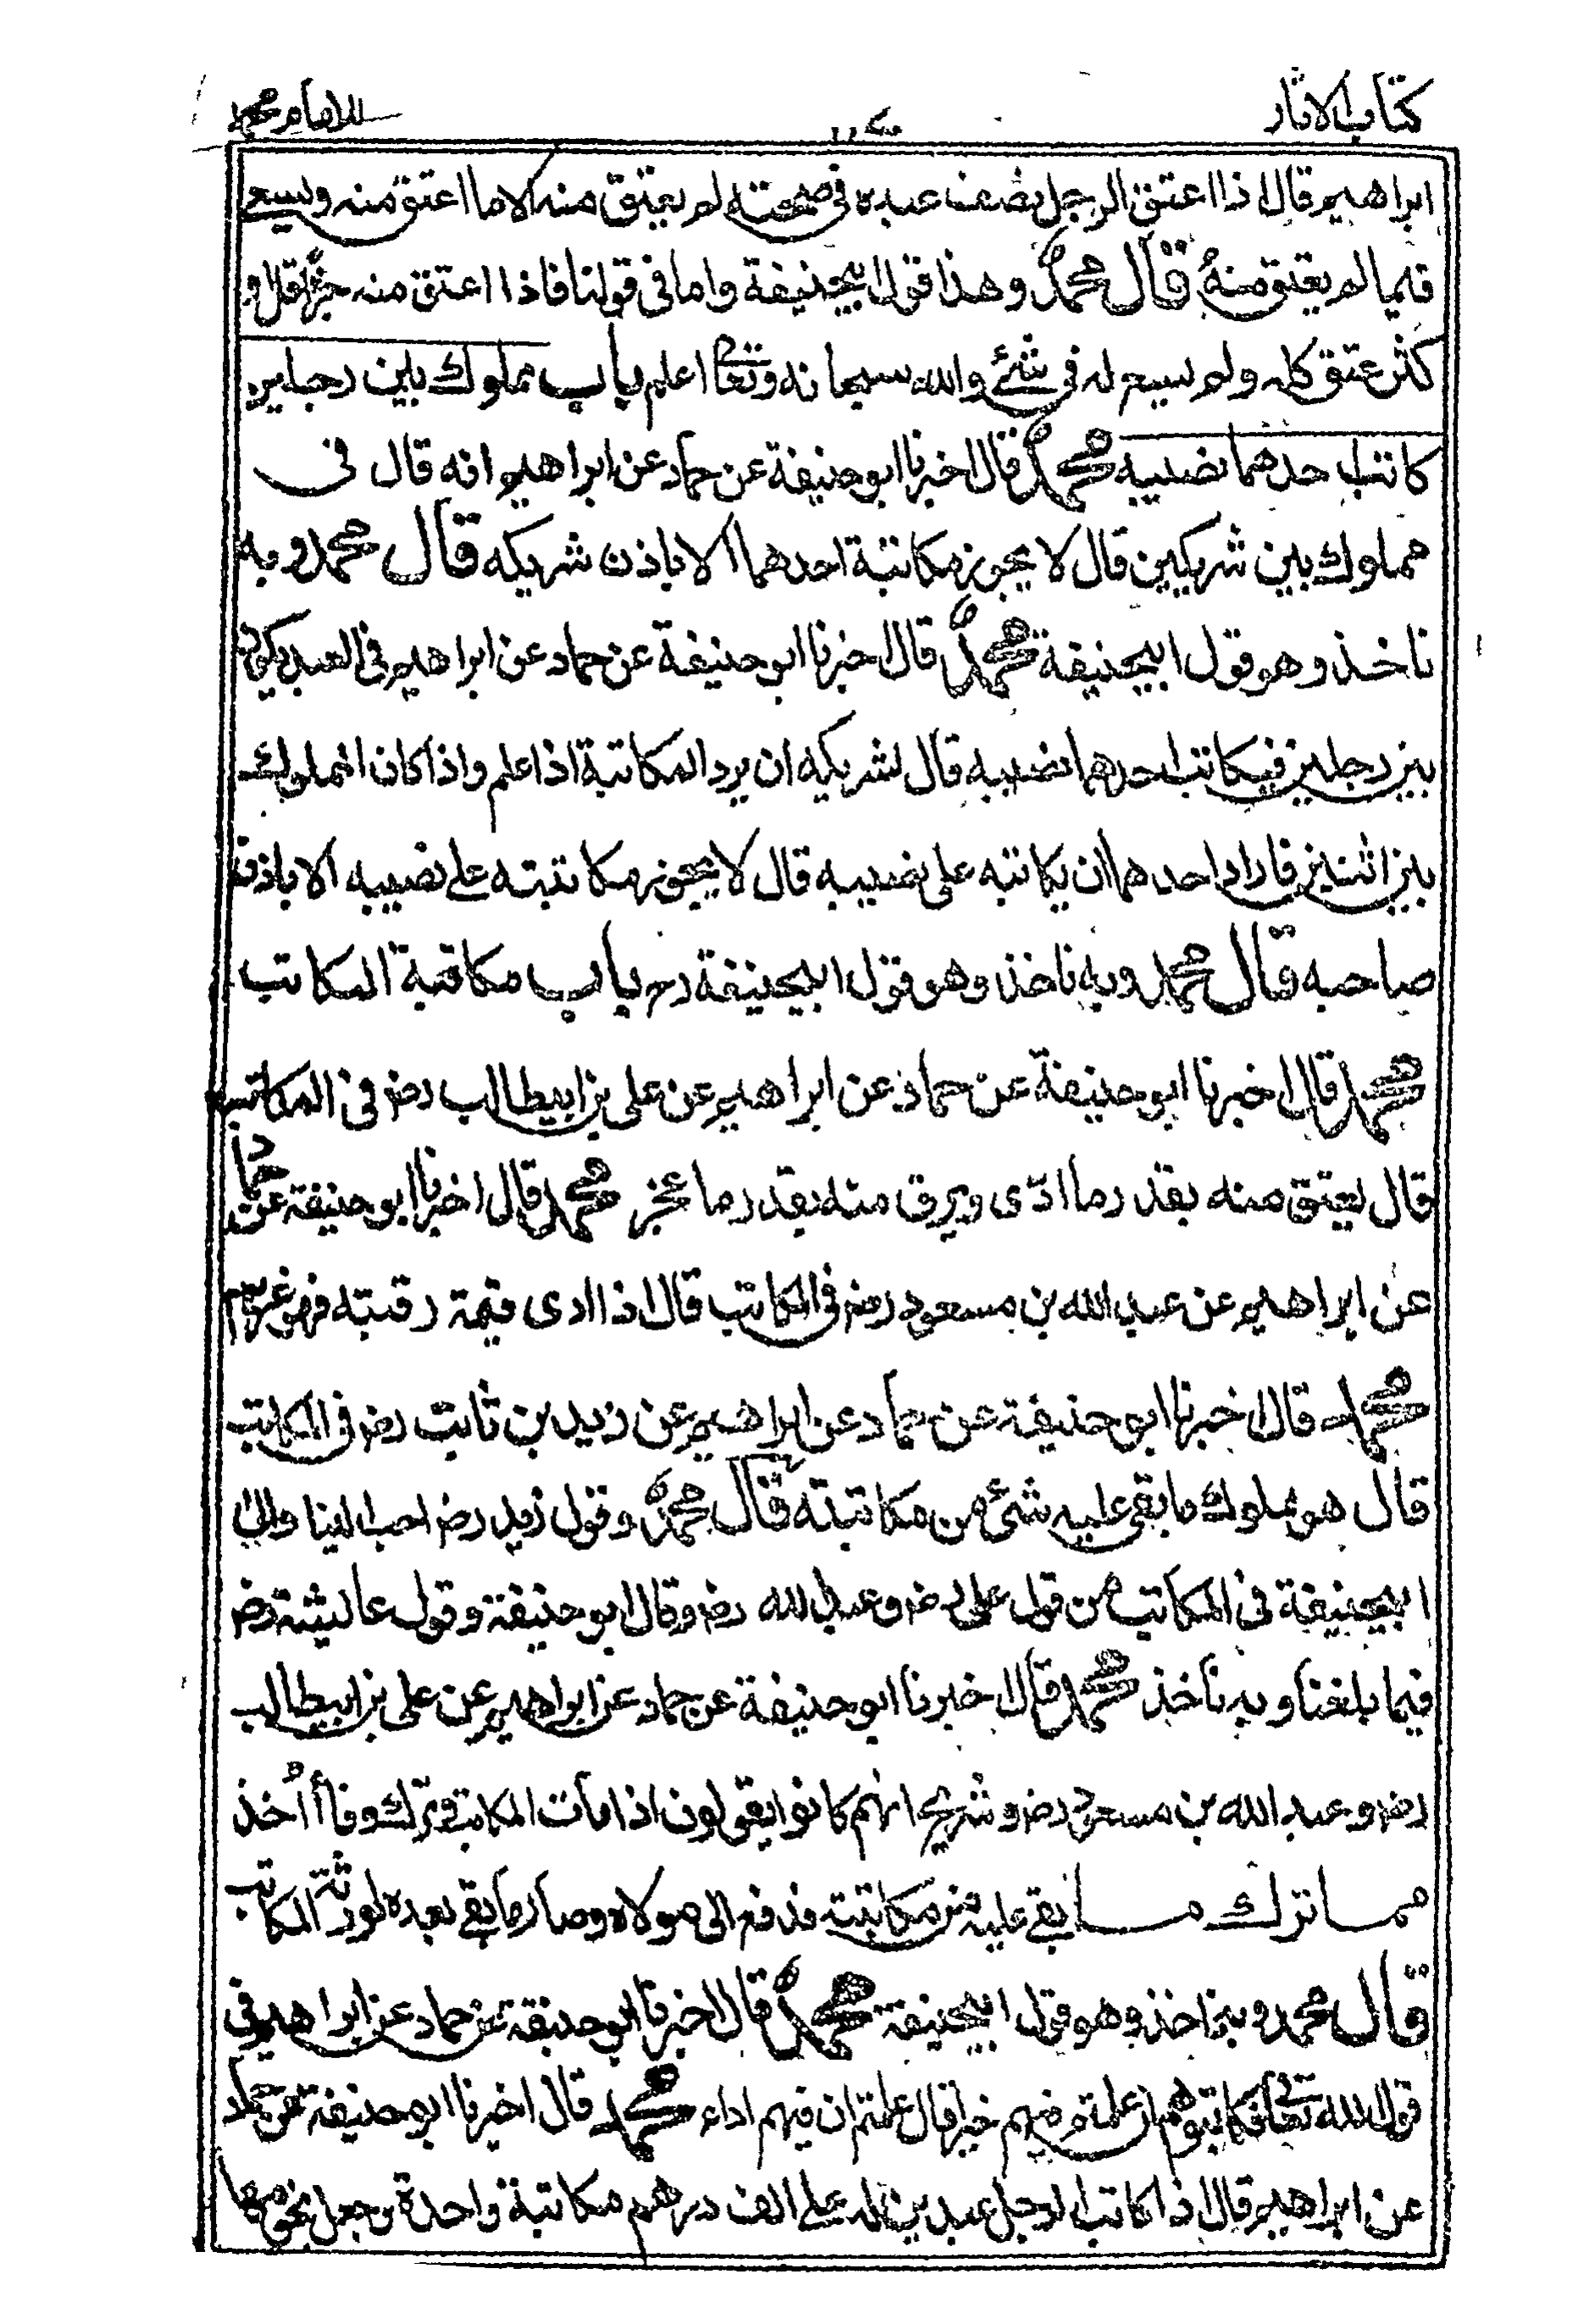 كتاب الاثار
للامام محمد
ابراهيم قال اذا اعتق الرجل نصف عبده في صحته لم يعتق منه الا ما اعتق منه ويسعى
فيما لم يعتق منه قال محمد وهذا قول ابيحنيفة واما في قولنا فاذا اعتق منه جزأ قل او
كثر عتق كله ولم يسع له في شئ والله سبحانه وتعا اعلم باب مملوك بين رجلين
كاتب احدهما نصيبه محمد قال اخبرنا ابو حنيفة عن حماد عن ابراهيم انه قال في
مملوك بين شريكين قال لا يجوز مكاتبة احدهما الا باذن شريكه قال محمد وبه
ناخذ وهو قول ابيحنيفة محمد قال اخبرنا ابو حنيفة عن حماد عن ابراهيم في العبد يكون
بين رجلين فيكاتب احدهما نصيبه قال لشريكه ان يرد المكاتبة اذا علم واذا كان المملوك
بين اثنين فاراد احدهما ان يكاتبه على نصيبه قال لا يجوز مكاتبته على نصيبه الا باذن
صاحبه قال محمد وبه ناخذ وهو قول ابيحنيفة رح باب مكاتبة المكاتب
محمد قال اخبرنا ابو حنيفة عن حماد عن ابراهيم عن على بن ابيطالب رض في المكاتب
قال يعتق منه بقدر ما ادّى ويرق منه بقدر ما عجز محمد قال اخبرنا ابو حنيفة عن حماد
عن ابراهيم عن عبد الله بن مسعود رض في المكاتب قال اذا ادى قيمة رقبته فهو غريم
محمد قال اخبرنا ابو حنيفة عن حماد عن ابراهيم عن زيد بن ثابت رض في المكاتب
قال هو مملوك ما بقى عليه شئ من مكاتبته قال محمد وقول زيد رض احب الينا والى
ابيحنيفة في المكاتب من قول على رض وعبد الله رض وقال ابو حنيفة وقول عائشة رض
فيما بلغنا وبه ناخذ محمد قال اخبرنا ابو حنيفة عن حماد عن ابراهيم عن على بن ابيطالب
رض وعبد الله بن مسعود رض وشريح انهم كانوا يقولون اذا مات المكاتب وترك وفاأ أخذ
مما ترك ما بقى عليه من مكاتبته فدفع الى مولاه وصار ما بقى بعده لورثة المكاتب
قال محمد وبه ناخذ وهو قول ابيحنيفة محمد قال اخبرنا ابو حنيفة عن حماد عن ابراهيم في
قول الله تعا فكاتبوهم ان علمتم فيهم خيرا قال علمتم ان فيهم اداء محمد قال اخبرنا ابو حنيفة عن حماد
عن ابراهيم قال اذا كاتب الرجل عبدين له على الف درهم مكاتبة واحدة وجعل نجومها